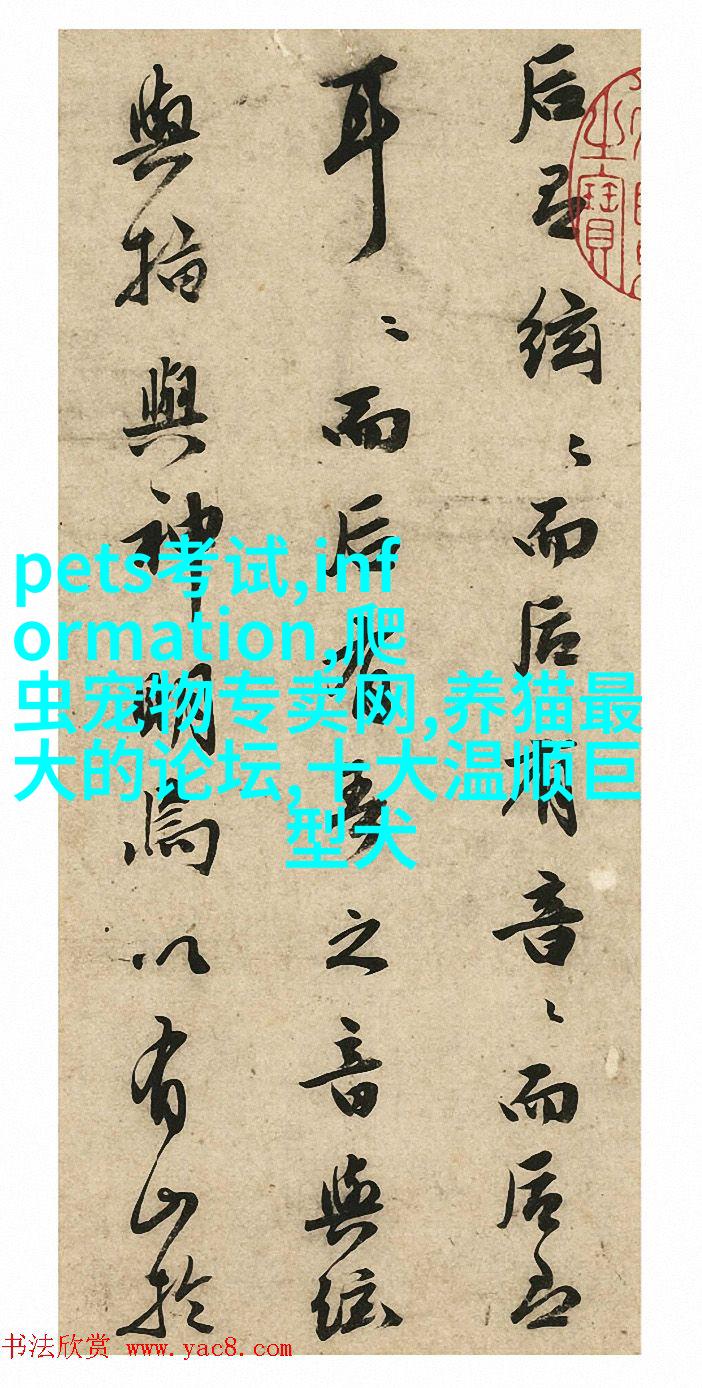 后絃〻而后有音〻而后
耳〻而后之音與絃
與指與神明焉以有山於
之寶
pets考试,inf
ormation,爬
虫宠物专卖网,养猫最
大的论坛,十大温顺巨
型犬
书法欣赏 www.yac8.com